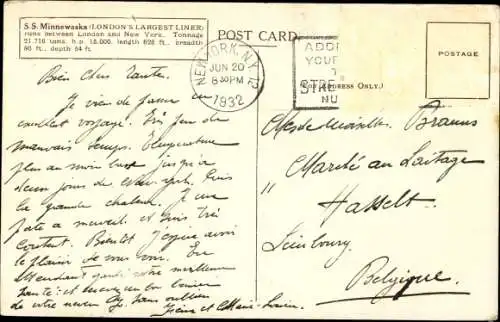 S.S. Minnewaska (LONDON'S LARGEST LINER)
runs between London and New York. Tonnage
21.716 tons. h.p. 16.000. length 626 ft., breadth
80 ft., depth 54 ft.
POST CARD
NEW YORK, N.Y. 12
JUN 20
8 30 PM
1932
ADD
YOUR
STREET
NU
(ADDRESS ONLY.)
POSTAGE
Bien chère Tante.
Je viens de passer un
excellent voyage. Très peu de
mauvais temps. Température
plus au moins jusqu'à
deux jours de New-York. Puis
la grande chaleur. Je me
porte à merveille et suis très
content. Bientôt j'espère avoir
le plaisir de vous voir. En
attendant gardez votre meilleure
santé et recevez un bon baiser
de votre neveu
Pierre et
Mesdemoiselles Brauns
Marché au Laitage
" Hasselt.
Limbourg
Belgique.